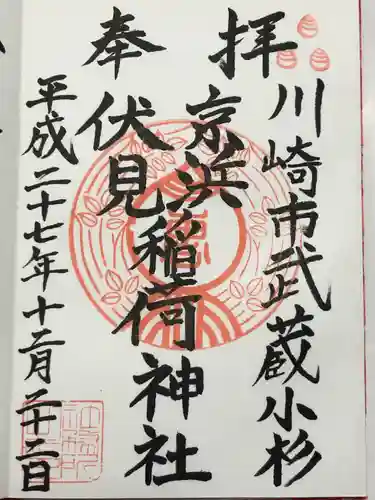 奉拝
川崎市武蔵小杉
京浜
伏見稲荷神社
平成二十七年十二月二十二日